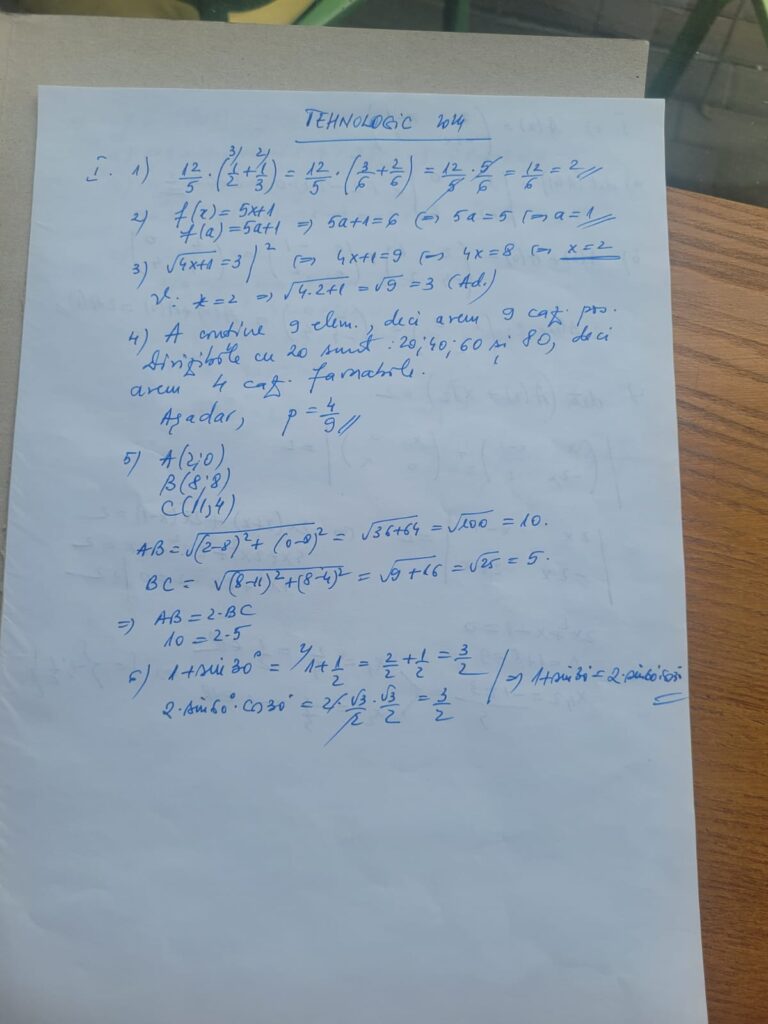 TEHNOLOGIC 2024
I. 1) 12/5 · (3) 1/2 + 2) 1/3) = 12/5 · (3/6 + 2/6) = 12/5 · 5/6 = 12/6 = 2
2) f(x) = 5x+1
f(a) = 5a+1 ⇒ 5a+1=6 ⇔ 5a=5 ⇔ a=1
3) √(4x+1) = 3 |² ⇔ 4x+1=9 ⇔ 4x=8 ⇔ x=2
V: x=2 ⇒ √(4·2+1) = √9 = 3 (Ad.)
4) A conține 9 elem., deci avem 9 caz. pos.
Divizibile cu 20 sunt: 20; 40; 60 și 80, deci
avem 4 caz. favorabile.
Așadar, p = 4/9
5) A(2;0)
B(8;8)
C(11,4)
AB = √((2-8)² + (0-8)²) = √(36+64) = √100 = 10.
BC = √((8-11)² + (8-4)²) = √(9+16) = √25 = 5.
⇒ AB = 2·BC
10 = 2·5
6) 1+sin 30° = 2) 1 + 1/2 = 2/2 + 1/2 = 3/2 | ⇒ 1+sin 30° = 2·sin 60°·cos 30°
2·sin 60°·cos 30° = 2·√3/2·√3/2 = 3/2